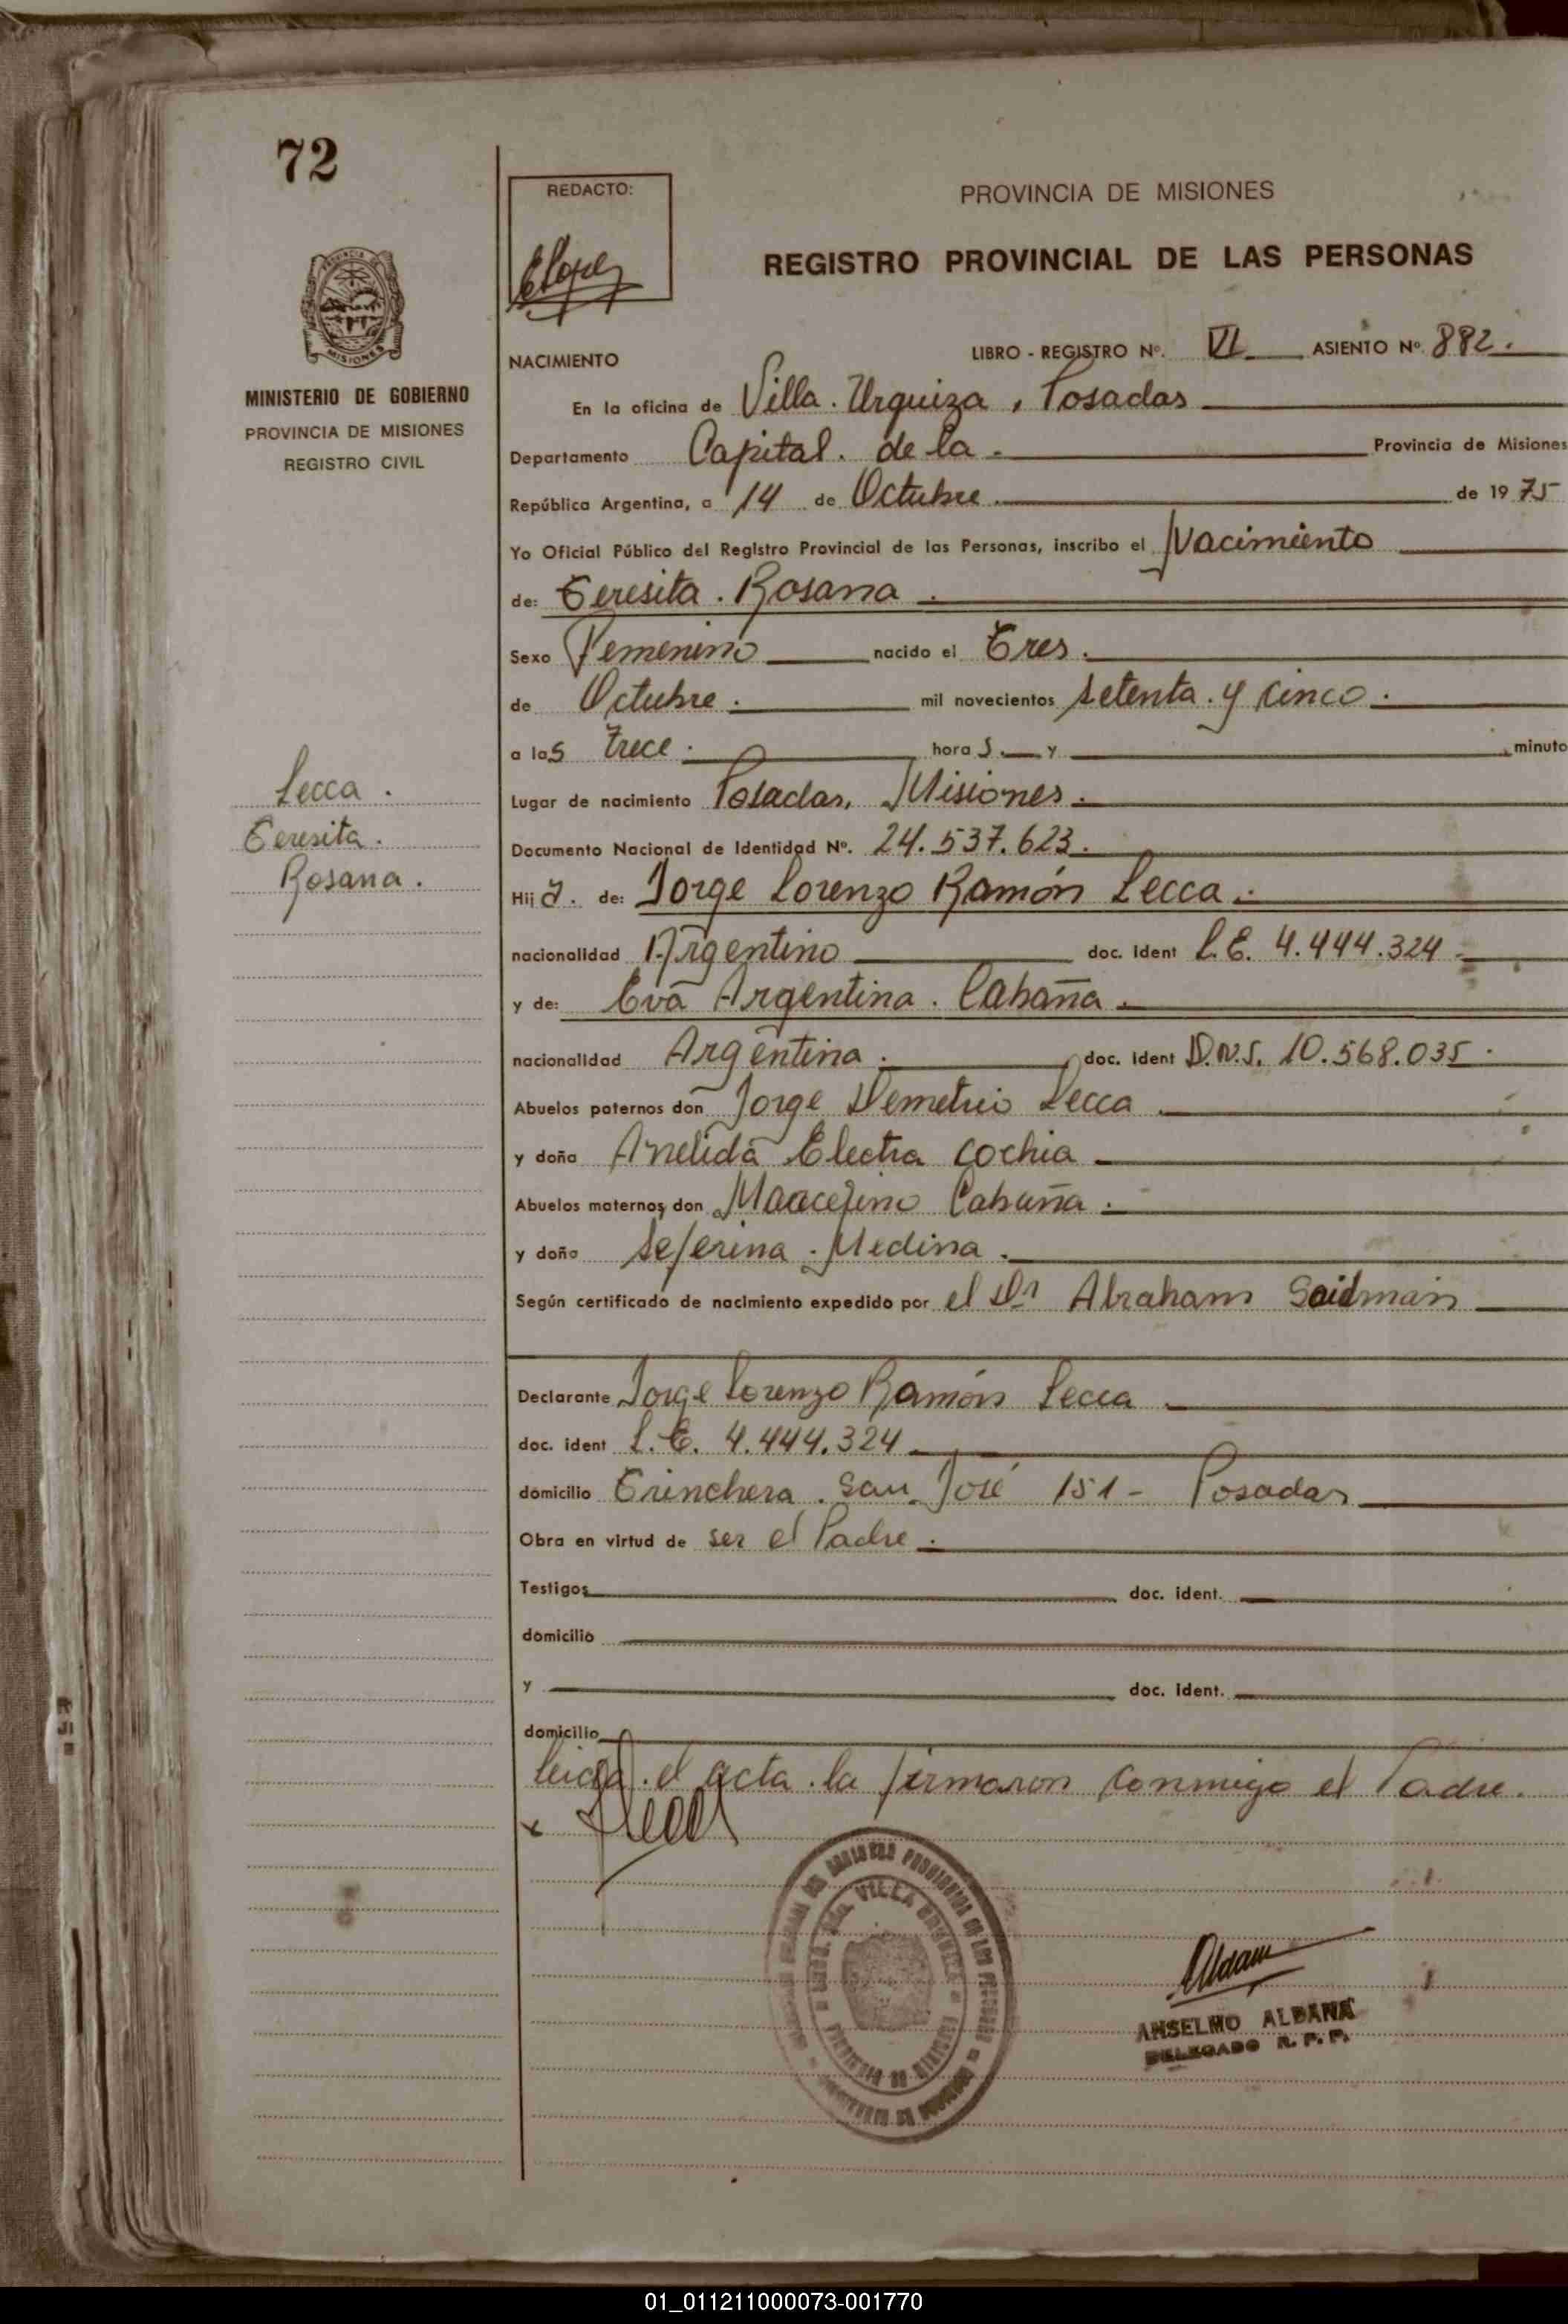 72
REDACTO:
PROVINCIA DE MISIONES
REGISTRO PROVINCIAL DE LAS PERSONAS
MISIONES
MINISTERIO DE GOBIERNO
PROVINCIA DE MISIONES
REGISTRO CIVIL
LIBRO - REGISTRO Nº. VI ASIENTO Nº. 882.
NACIMIENTO
En la oficina de Villa. Urquiza, Posadas
Departamento Capital. de la. Provincia de Misiones
República Argentina, a 14 de Octubre de 1975
Yo Oficial Público del Registro Provincial de las Personas, inscribo el Nacimiento
de: Teresita. Rosana.
Sexo Femenino nacido el Tres.
de Octubre. mil novecientos setenta. y cinco.
a las trece. horas. y minuto
Lecca.
Teresita.
Rosana.
Lugar de nacimiento Posadas, Misiones.
Documento Nacional de Identidad Nº. 24.537.623.
Hija. de: Jorge Lorenzo Ramón Lecca.
nacionalidad Argentino doc. ident L.E. 4.444.324.
y de: Eva Argentina. Cabaña.
nacionalidad Argentina. doc. ident D.N.I. 10.568.035.
Abuelos paternos don Jorge Demetrio Lecca.
y doña Anelida Electra Cochia
Abuelos maternos don Cabaña.
y doña Seferina. Medina.
Según certificado de nacimiento expedido por el Dr Abraham Saidman
Declarante Jorge Lorenzo Ramón Lecca
doc. ident L.E. 4.444.324
domicilio Trinchera. San José 151 - Posadas
Obra en virtud de ser el Padre.
Testigos doc. ident.
domicilio
y doc. ident.
domicilio
leida. el acta. la firmaron conmigo el Padre.
x
VILLA URQUIZA
ANSELMO ALDANA
DELEGADO R. P. P.
01_011211000073-001770